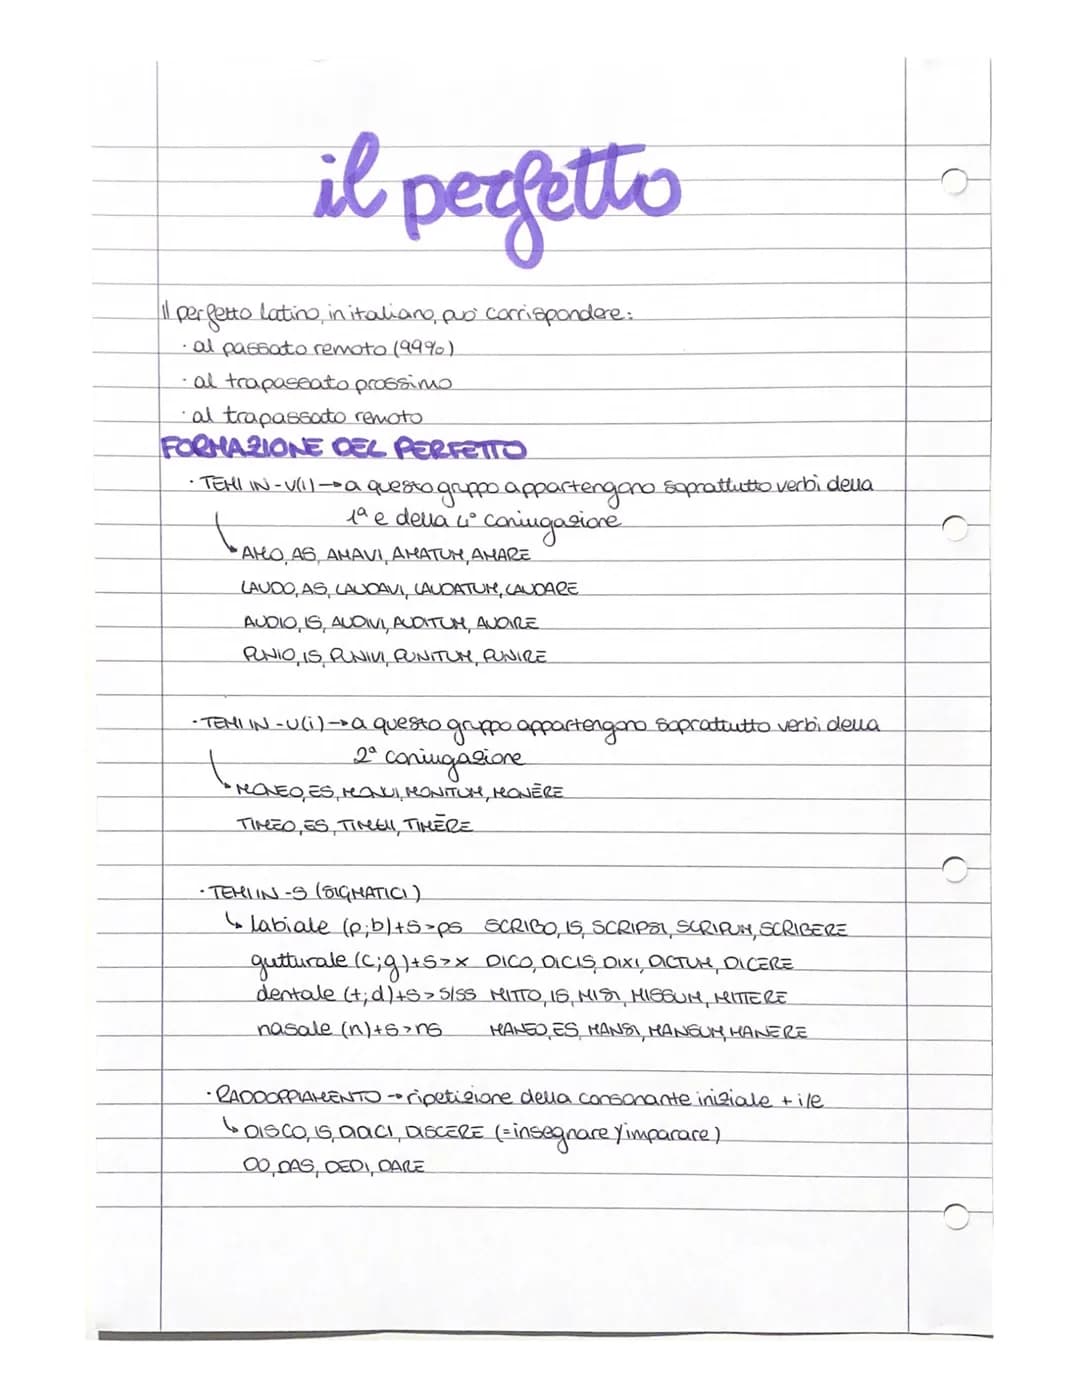 il perfetto
Il perfetto latino, in italiano, può corrispondere:
· al passato remoto (99%)
· al trapassato prossimo
· al trapassato remoto
FORMAZIONE DEL PERFETTO
· TEMI IN -V(I) → a questo gruppo appartengono soprattutto verbi della
1ª e della 4ª coniugazione
AMO, AS, AMAVI, AMATUM, AMARE
LAUDO, AS, LAUDAVI, LAUDATUM, LAUDARE
AUDIO, IS, AUDIVI, AUDITUM, AUDIRE
PUNIO, IS, PUNIVI, PUNITUM, PUNIRE
· TEMI IN -U(i) → a questo gruppo appartengono soprattutto verbi della
2ª coniugazione
MONEO, ES, MONUI, MONITUM, MONĒRE
TIMEO, ES, TIMUI, TIMĒRE
· TEMI IN -S (SIGMATICI)
↳ labiale (p;b)+s>ps SCRIBO, IS, SCRIPSI, SCRIPUM, SCRIBERE
gutturale (c;g)+s>x DICO, DICIS, DIXI, DICTUM, DICERE
dentale (t;d)+s>s/ss MITTO, IS, MISI, MISSUM, MITTERE
nasale (n)+s>ns MANEO, ES, MANSI, MANSUM, MANERE
· RADDOPPIAMENTO → ripetizione della consonante iniziale + i/e
↳ DISCO, IS, DIDICI, DISCERE (=insegnare/imparare)
DO, DAS, DEDI, DARE